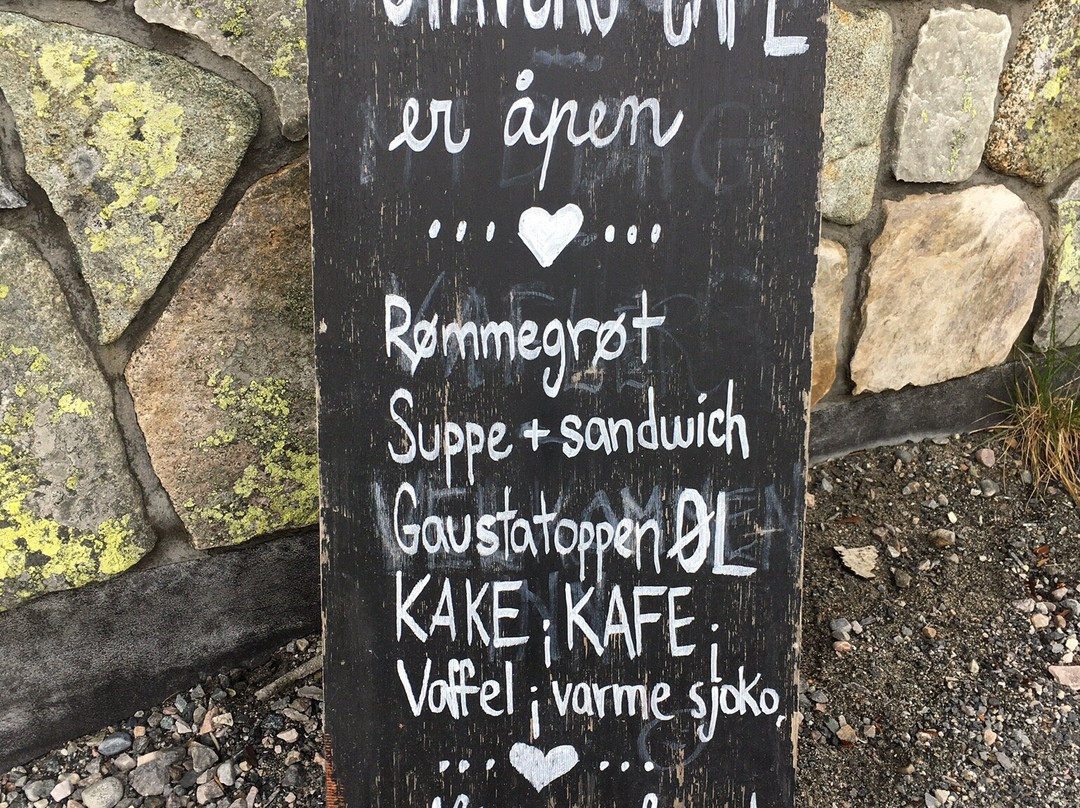 er åpen
Rømmegrøt
Suppe + sandwich
Gaustatoppen ØL
KAKE ; KAFE ;
Vaffel ; varme sjoko,